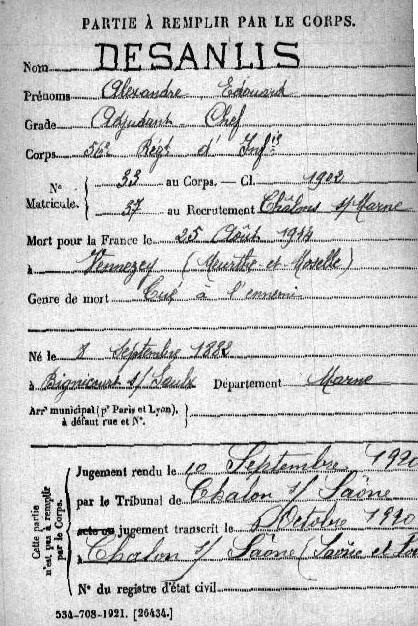 PARTIE À REMPLIR PAR LE CORPS.
Nom DESANLIS
Prénoms Alexandre Edouard
Grade Adjudant Chef
Corps 56e Régt d' Infie
N° Matricule. 33 au Corps. — Cl. 1902
37 au Recrutement Châlons s/Marne
Mort pour la France le 25 Août 1914
à Vennezey (Meurthe et Moselle)
Genre de mort Tué à l'ennemi
Né le 8 Septembre 1882
à Bignicourt s/ Saulx Département Marne
Arr' municipal (p' Paris et Lyon),
à défaut rue et N°.
Cette partie n'est pas à remplir par le Corps.
Jugement rendu le 10 Septembre 1920
par le Tribunal de Chalon s/ Saône
acte ou jugement transcrit le Octobre 1920
à Chalon s/ Saône (Saône et
N° du registre d'état civil
534-708-1921. [26434.]